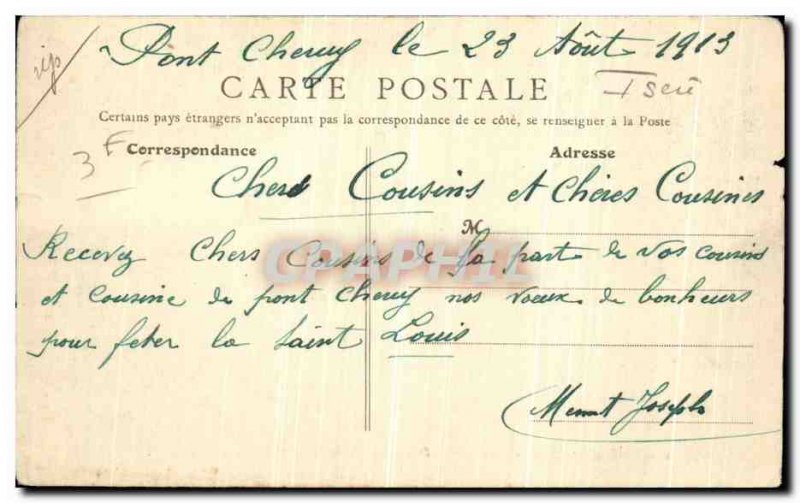 Pont Cheruy le 23 Août 1913
CARTE POSTALE
Isère
Certains pays étrangers n'acceptant pas la correspondance de ce côté, se renseigner à la Poste
3 F
Correspondance
Adresse
Chers Cousins et Chères Cousines
M
Recevez Chers Cousins de la part de vos cousins
et cousine de pont Cheruy nos vœux de bonheurs
pour feter la Saint Louis
Joseph